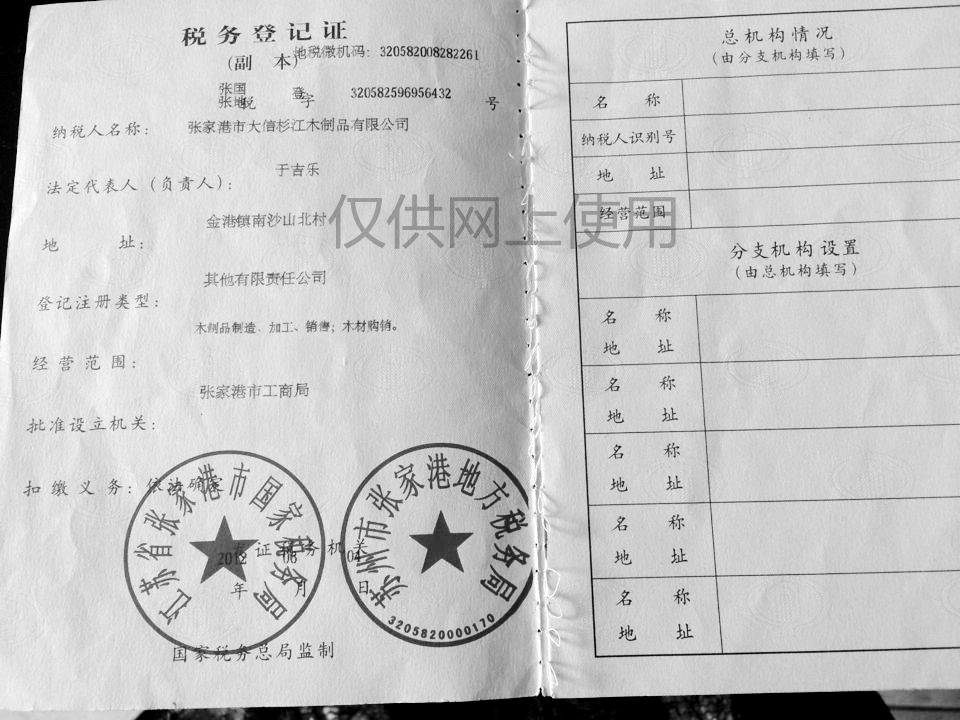 税务登记证
(副 本)
地税微机码: 320582008282261
张国
张地
税 登 字 320582596956432 号
纳税人名称: 张家港市大信杉江木制品有限公司
法定代表人（负责人）: 于吉乐
地 址: 金港镇南沙山北村
登记注册类型: 其他有限责任公司
经营范围: 木制品制造、加工、销售; 木材购销。
批准设立机关: 张家港市工商局
扣缴义务: 依法确定
发证税务机关
2012 年 06 月 04 日
江苏省张家港市国家税务局
苏州市张家港地方税务局
3205820000170
国家税务总局监制
仅供网上使用
总机构情况
(由分支机构填写)
名 称
纳税人识别号
地 址
经营范围
分支机构设置
(由总机构填写)
名 称
地 址
名 称
地 址
名 称
地 址
名 称
地 址
名 称
地 址